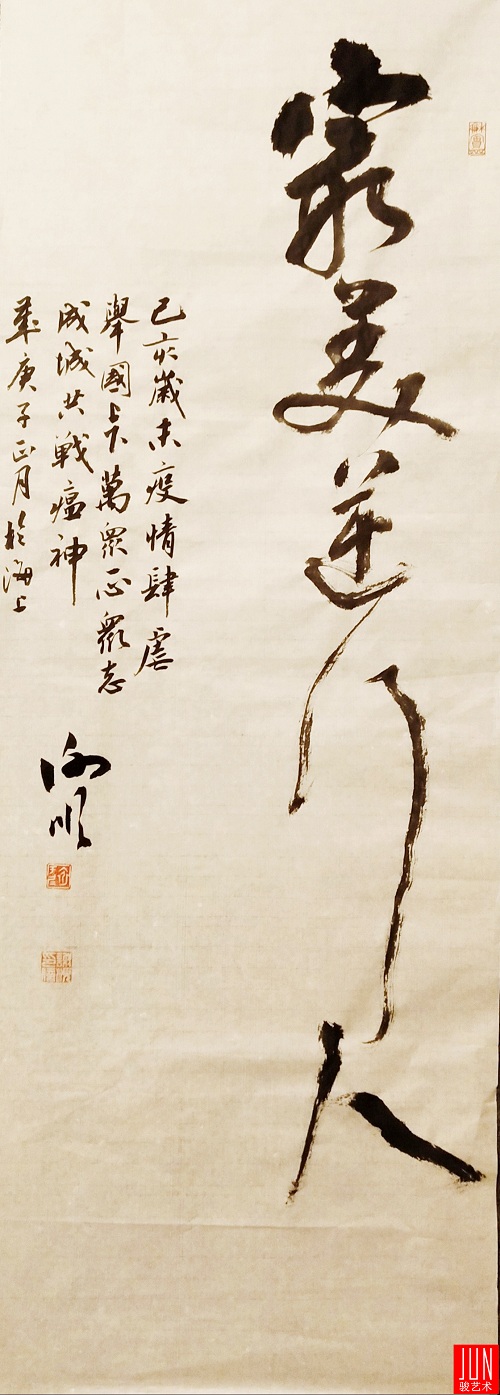 最美逆行人
己亥歲末疫情肆虐
舉國上下萬眾一心眾志
成城共戰瘟神
庚子正月於海上
JUN
骏艺术